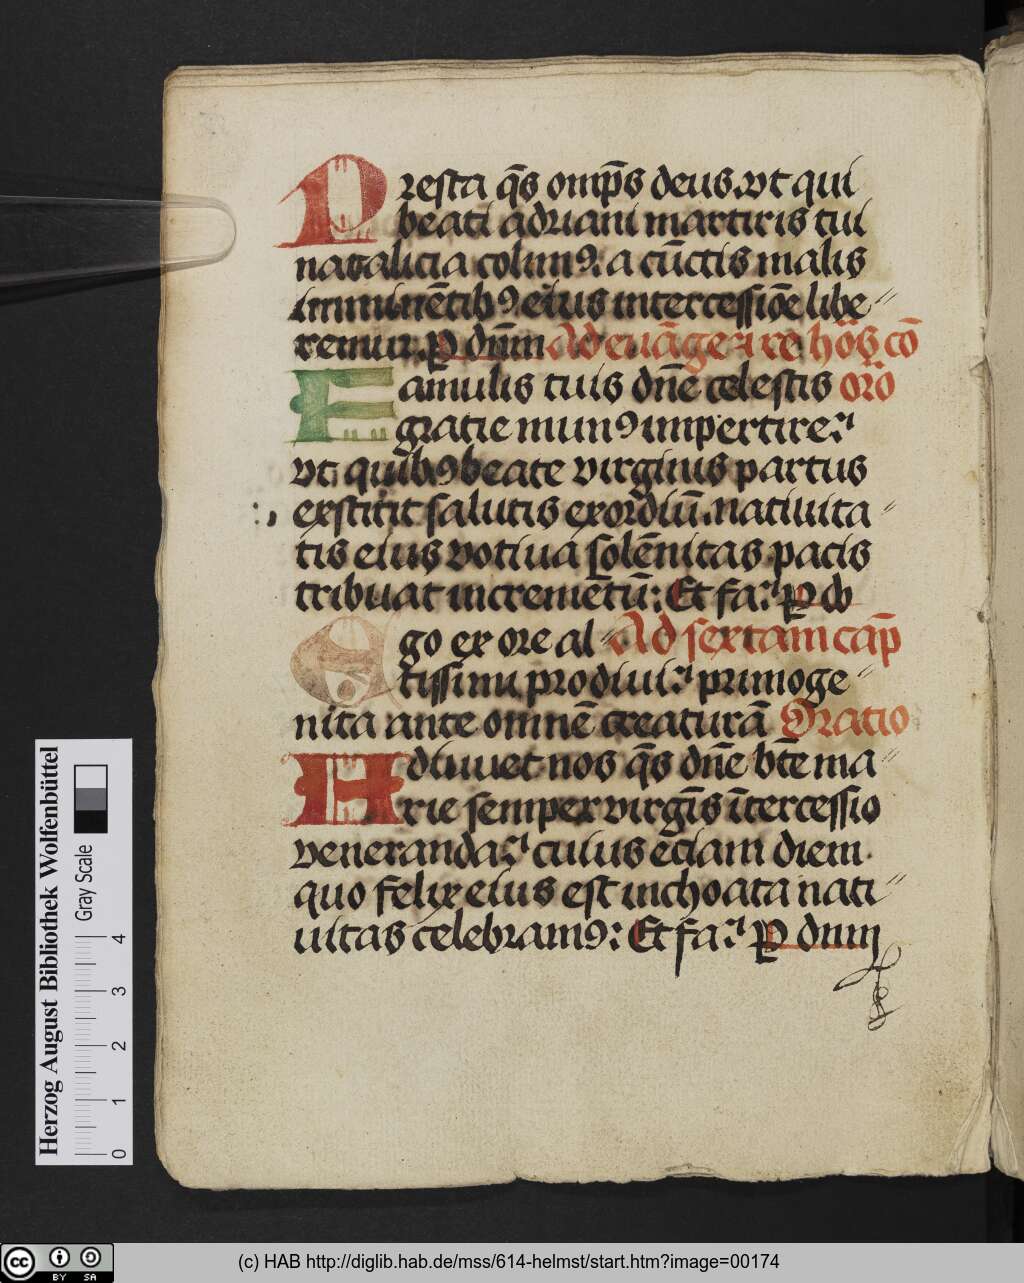 Presta q̄s omp̄s deus. vt qui
beati adriani martiris tui
natalicia colimꝰ: a cūctis malis
imminētibꝰ eius intercessiōe libe〃
remur. P dn̄m Ad euāge
Famulis tuis dn̄e celestis orō
gratie munꝰ impertire:
vt quibꝰ beate virginis partus
exstitit salutis exordiū. natiuita〃
tis eius votiua solēnitas pacis
tribuat incremētū: Et fa: P do
Ego ex ore al〃 Ad sextam cap̄
tissimi prodiui: primoge〃
nita ante omnē creaturā Oratio
Adiuuet nos q̄s dn̄e bt̄e ma〃
rie semper virgīs ītercessio
veneranda: cuius eciam diem
quo felix eius est inchoata nati〃
uitas celebramꝰ: Et fa: P dnm
Herzog August Bibliothek Wolfenbüttel
Gray Scale
0 1 2 3 4
cc BY SA
(c) HAB http://diglib.hab.de/mss/614-helmst/start.htm?image=00174